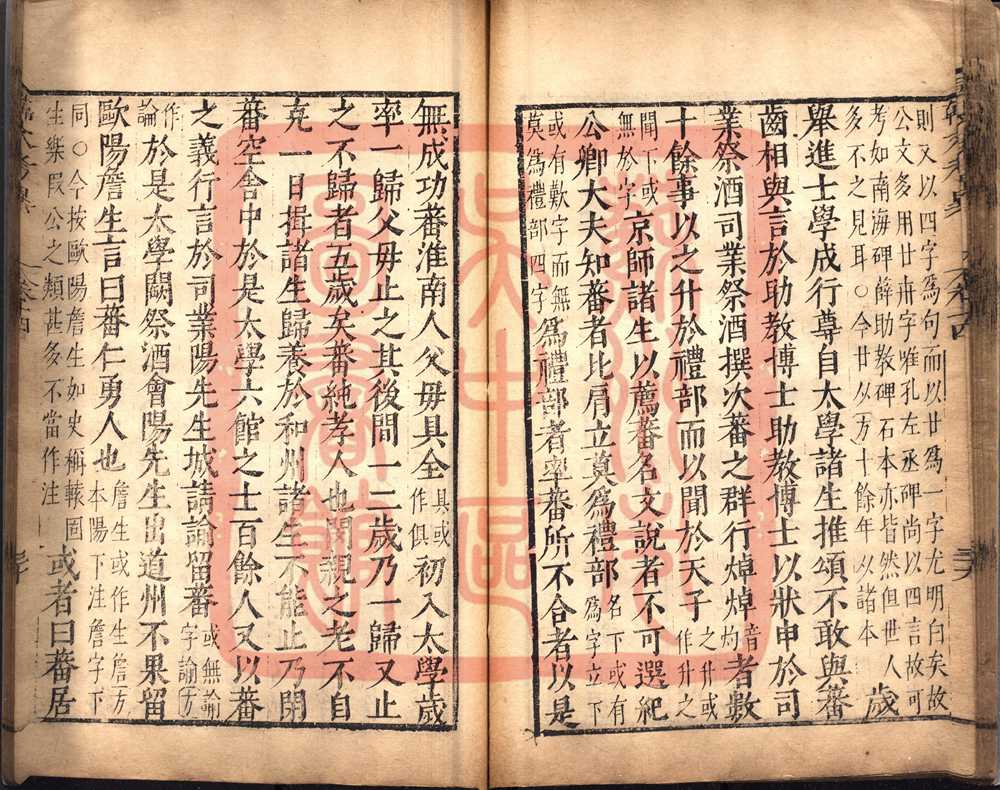 則又以四字爲句而以廿爲一字尤明白矣故
公文多用廿卅字唯孔左丞碑尚以四言故可
考如南海碑薛助教碑石本亦皆然但世人
多不之見耳○今廿以方十餘年以諸本
歲
舉進士學成行尊自太學諸生推頌不敢與蕃
齒相與言於助教博士助教博士以狀申於司
業祭酒司業祭酒撰次蕃之群行焯焯音灼者數
十餘事以之升於禮部而以聞於天子之升或作升之
聞下或無於字京師諸生以薦蕃名文說者不可選紀名下或有
公卿大夫知蕃者比肩立莫爲禮部爲字立下
或有歎字而無莫爲禮部四字爲禮部者率蕃所不合者以是
無成功蕃淮南人父母具全具或作俱初入太學歲
率一歸父母止之其後間一二歲乃一歸又止
之不歸者五歲矣蕃純孝人也閔親之老不自
克一日揖諸生歸養於和州諸生不能止乃閉
蕃空舍中於是太學六館之士百餘人又以蕃
之義行言於司業陽先生城請諭留蕃或無諭字諭方
作論於是太學闕祭酒會陽先生出道州不果留
歐陽詹生言曰蕃仁勇人也詹生或作生詹方本陽下注詹字下
同○今按歐陽詹生如史稱轅固生樂叚公之類甚多不當作注或者曰蕃居